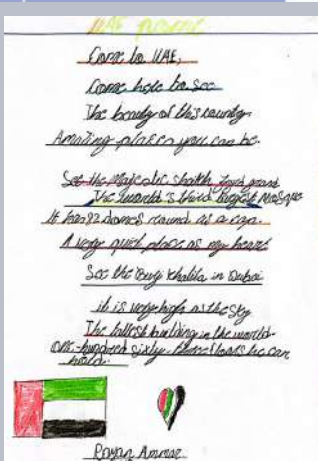 UAE
Come to UAE,
Come here to see
The beauty of this country.
Amazing places you can be.
See the Majestic Sheikh Zayd grand
The world's third largest Mosque
It has 82 domes round as a cap.
A very quiet place as my heart
See the Burj Khalifa in Dubai
it is very high as the sky
The tallest building in the world
one-hundred sixty-three floors he can
hold.
Rayan Ammar